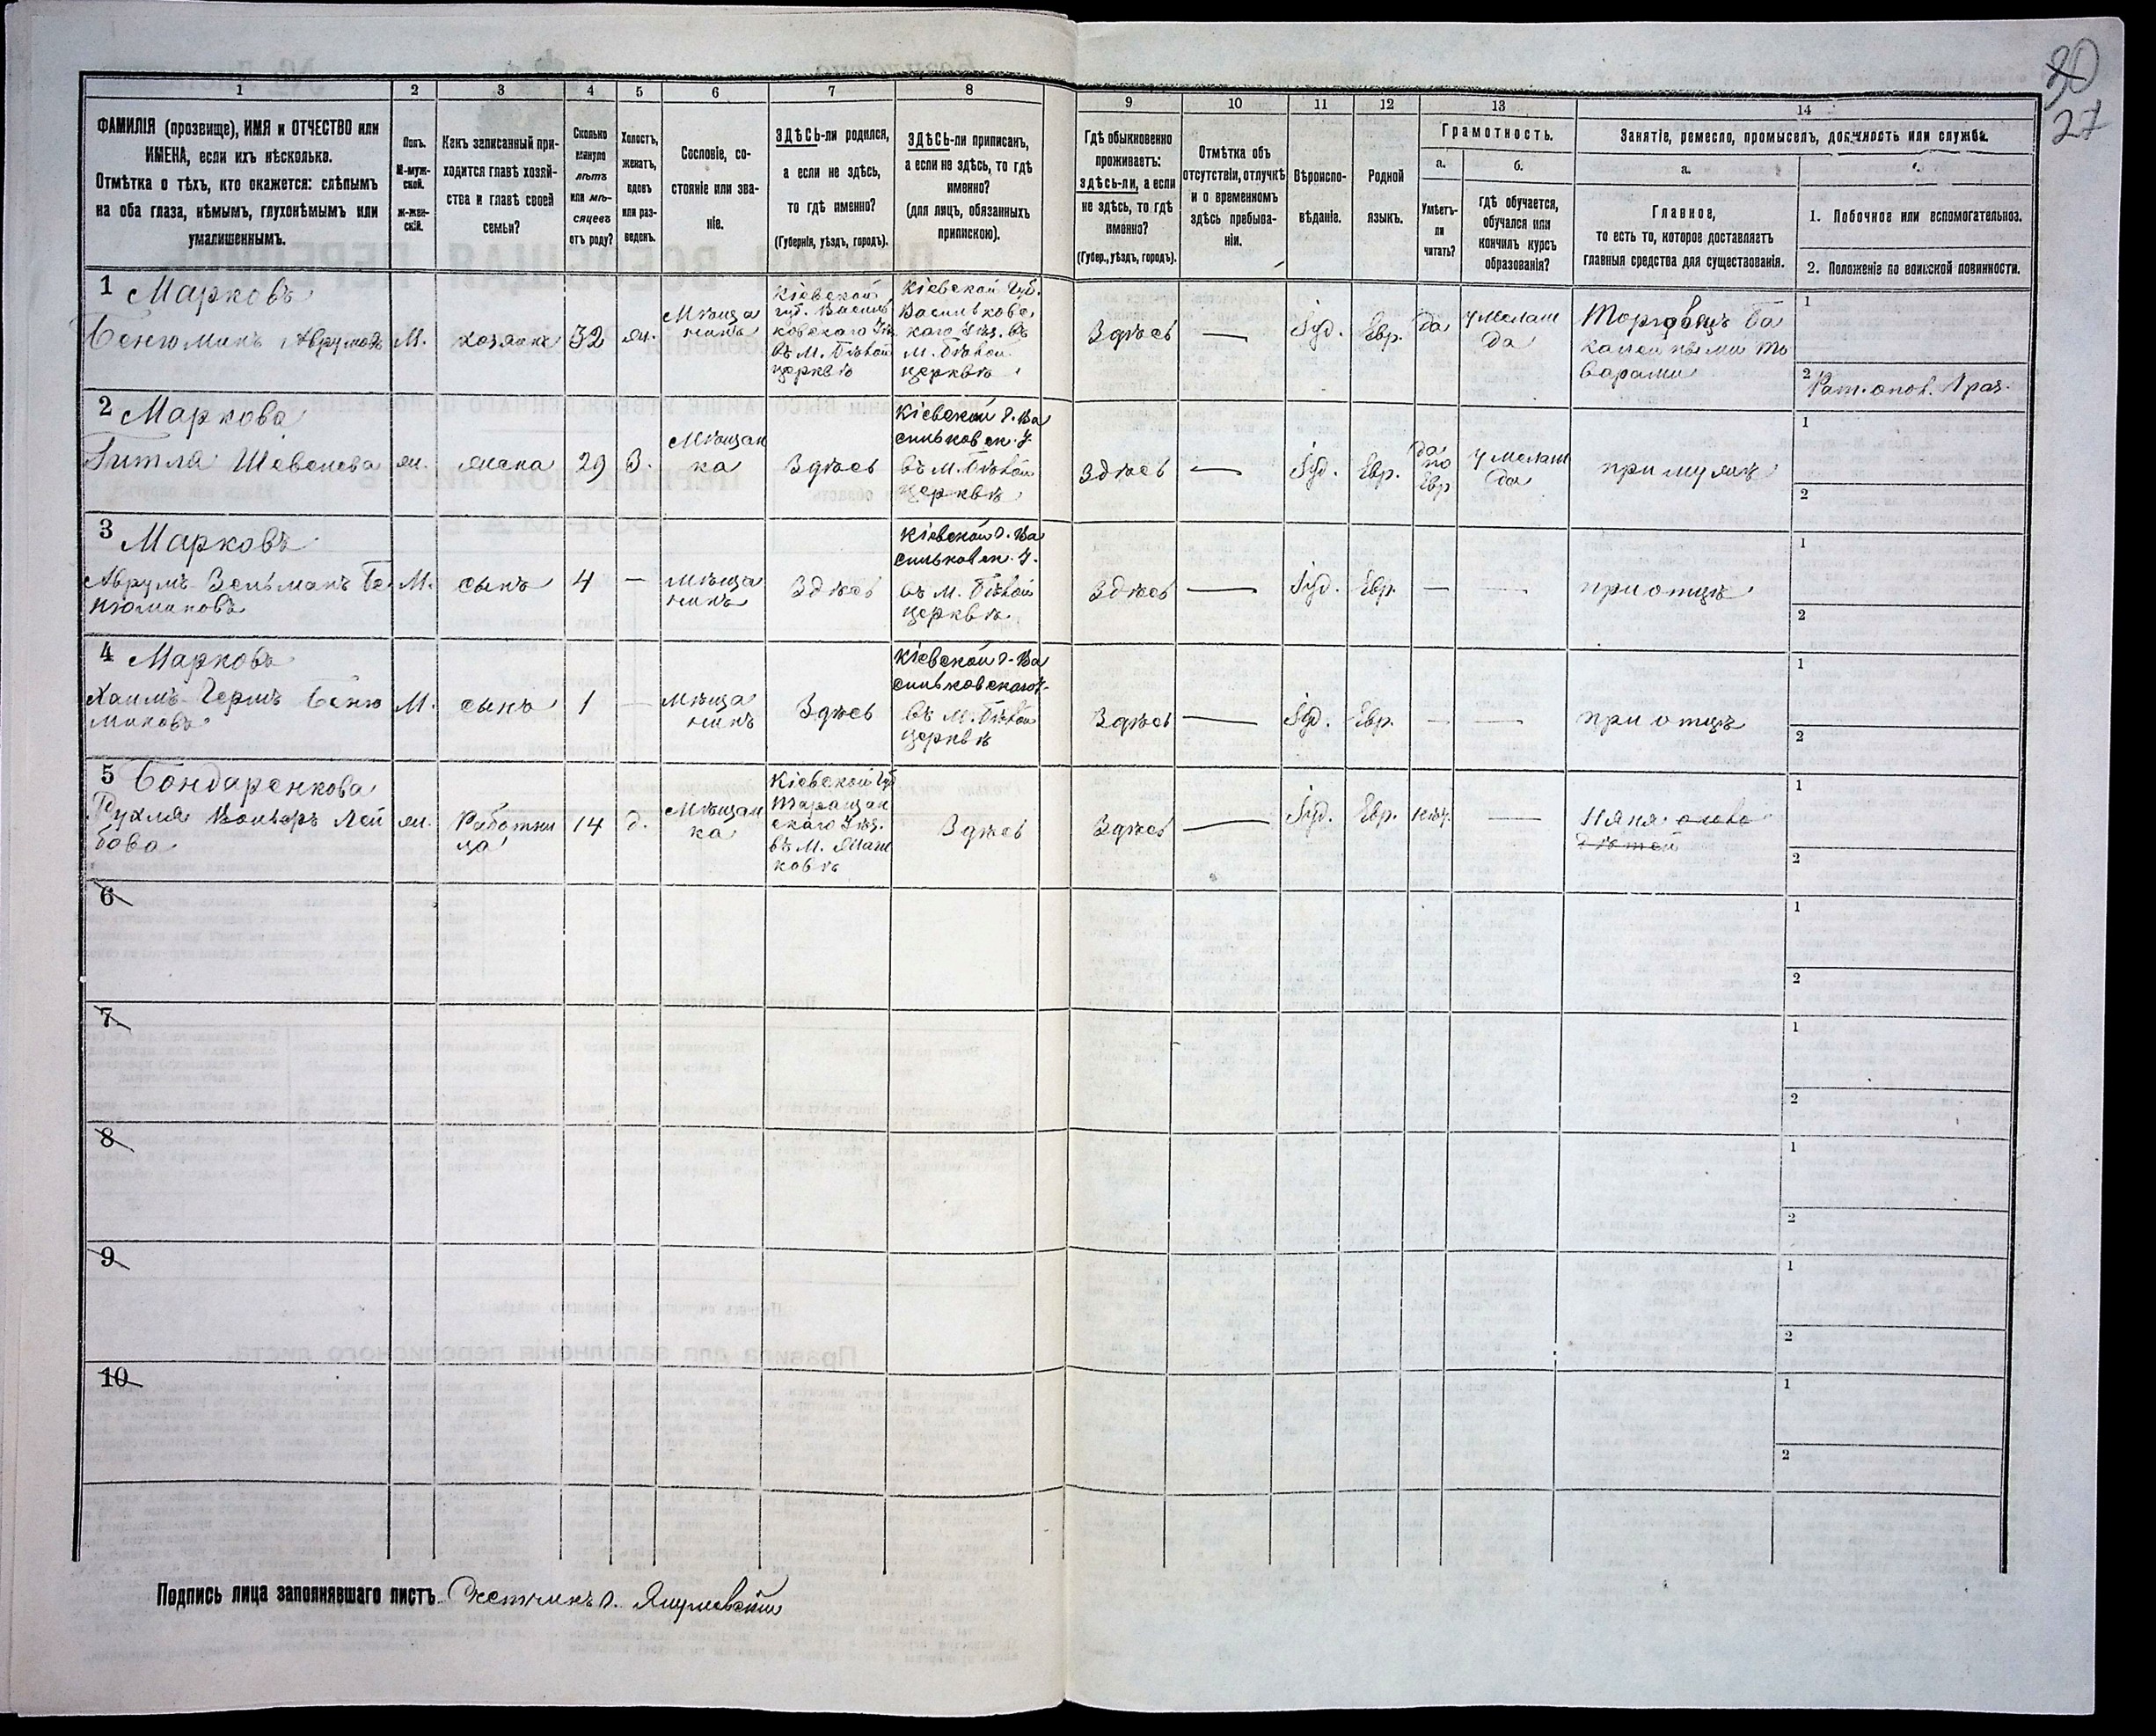 30
27
1
2
3
4
5
6
7
8
9
10
11
12
13
14
ФАМИЛІЯ (прозвище), ИМЯ и ОТЧЕСТВО или
ИМЕНА, если ихъ нѣсколько.
Отмѣтка о тѣхъ, кто окажется: слѣпымъ
на оба глаза, нѣмымъ, глухонѣмымъ или
умалишеннымъ.
Полъ.
М-муж-
ской.
ж-жен-
скій.
Какъ записанный при-
ходится главѣ хозяй-
ства и главѣ своей
семьи?
Сколько
минуло
лѣтъ
или мѣ-
сяцевъ
отъ роду?
Холостъ,
женатъ,
вдовъ
или раз-
веденъ.
Сословіе, со-
стояніе или зва-
ніе.
ЗДѢСЬ-ли родился,
а если не здѣсь,
то гдѣ именно?
(Губернія, уѣздъ, городъ).
ЗДѢСЬ-ли приписанъ,
а если не здѣсь, то гдѣ
именно?
(для лицъ, обязанныхъ
припискою).
Гдѣ обыкновенно
проживаетъ:
здѣсь-ли, а если
не здѣсь, то гдѣ
именно?
(Губер., уѣздъ, городъ).
Отмѣтка объ
отсутствіи, отлучкѣ
и о временномъ
здѣсь пребыва-
ніи.
Вѣроиспо-
вѣданіе.
Родной
языкъ.
Грамотность.
а.
Умѣетъ-
ли
читать?
б.
гдѣ обучается,
обучался или
кончилъ курсъ
образованія?
Занятіе, ремесло, промыселъ, должность или служба.
а.
Главное,
то есть то, которое доставляетъ
главныя средства для существованія.
1. Побочное или вспомогательное.
2. Положеніе по воинской повинности.
1 Марковъ
Бенюминъ Аврумовъ
М.
хозяинъ
32
ж.
Мѣща
нинъ
Кіевской
губ. Василь
ковскаго Уѣз.
въ М. Бѣлой
церквѣ
Кіевской Губ.
Васильковс
каго Уѣз. въ
М. Бѣлой
церквѣ
Здѣсь
—
Іуд.
Евр.
да
У Мелам
да
Торговецъ Ба
калейными то
варами
1
2
Рат. опол.
2 Маркова
Гитля
жн.
жена
29
З.
Мѣщан
ка
Здѣсь
Кіевской г. Ва
сильков ск. У.
въ М. Бѣлой
церквѣ
Здѣсь
—
Іуд.
Евр.
да
по
Евр
У Мелам
да
при мужѣ
1
2
3 Марковъ
Аврумъ Зельманъ Бе
нюминовъ
М.
сынъ
4
—
Мѣща
нинъ
Здѣсь
Кіевской г. Ва
сильков ск. У.
въ М. Бѣлой
церквѣ
Здѣсь
—
Іуд.
Евр.
—
—
при отцѣ
1
2
4 Марковъ
Хаимъ Гершъ Беню
миновъ
М.
сынъ
1
—
Мѣща
нинъ
Здѣсь
Кіевской г. Ва
сильковскаго У.
въ М. Бѣлой
церквѣ
Здѣсь
—
Іуд.
Евр.
—
—
при отцѣ
1
2
5 Бондаренкова
Рухля Лей
бова
жн.
Работни
ца
14
д.
Мѣщан
ка
Кіевской Губ
Таращан
скаго Уѣз.
въ М. Жаш
ковѣ
Здѣсь
Здѣсь
—
Іуд.
Евр.
нѣт.
—
Няня
дѣтей
1
2
6
1
2
7
1
2
8
1
2
9
1
2
10
1
2
Подпись лица заполнявшаго листъ